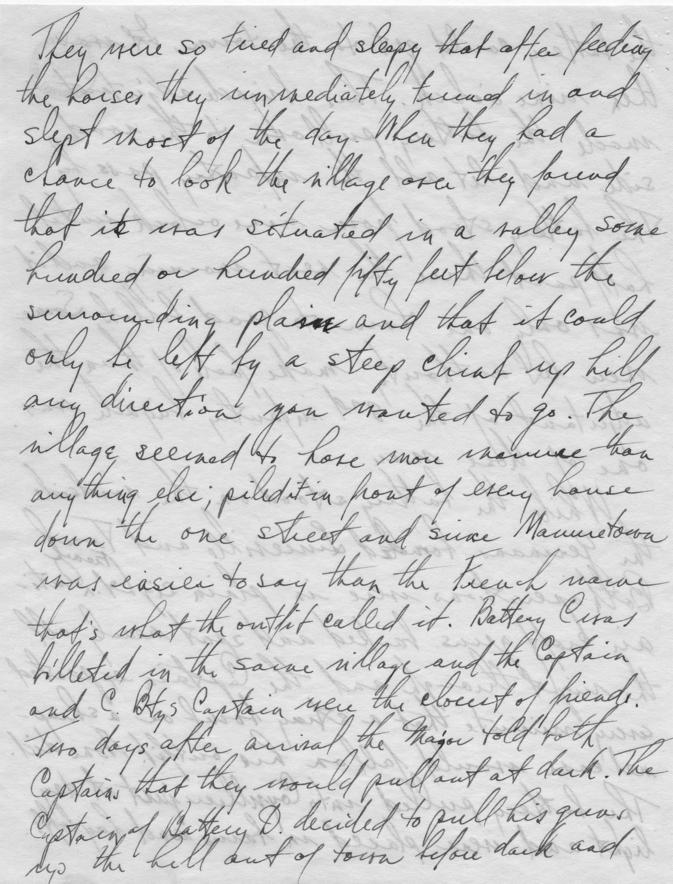 They were so tired and sleepy that after feeding
the horses they immediately turned in and
slept most of the day. When they had a
chance to look the village over they found
that it was situated in a valley some
hundred or hundred fifty feet below the
surrounding plain and that it could
only be left by a steep climb up hill
any direction you wanted to go. The
village seemed to have more manure than
anything else; piled it in front of every house
down the one street and since Manuretown
was easier to say than the French name
that's what the outfit called it. Battery C was
billeted in the same village and the Captain
and C Btys Captain were the closest of friends.
Two days after arrival the Major told both
Captains that they would pull out at dark. The
Captain of Battery D. decided to pull his guns
up the hill out of town before dark and